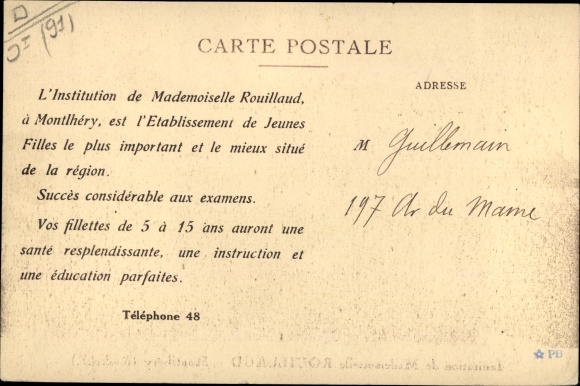 (91)
CARTE POSTALE
ADRESSE
L'Institution de Mademoiselle Rouillaud,
à Montlhéry, est l'Etablissement de Jeunes
Filles le plus important et le mieux situé
de la région.
Succès considérable aux examens.
Vos fillettes de 5 à 15 ans auront une
santé resplendissante, une instruction et
une éducation parfaites.
Téléphone 48
M Guillemain
197 Av du Maine
PB